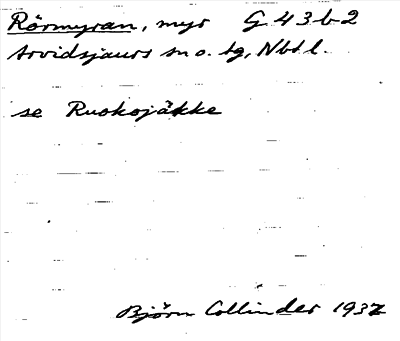 Rörmyran, myr G 43 b 2
Arvidsjaurs sn o. tg, Nbtl.
se Ruokojäkke
Björn Collinder 1937